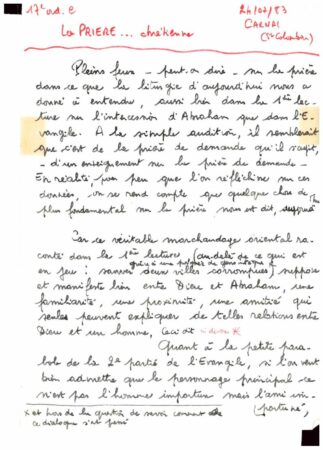 17e ord. C
24/07/83
CARNAC
(St Colomban)
La PRIERE... chrétienne
Pleins feux – peut-on dire – sur la prière
dans ce que la liturgie d'aujourd'hui nous a
donné à entendre, aussi bien dans la 1ère lec-
ture sur l'intercession d'Abraham que dans l'E-
vangile. A la simple audition, il semblerait
que c'est de la prière de demande qu'il s'agit,
– d'un enseignement sur la prière de demande –
En réalité, pour peu que l'on réfléchisse sur ces
données, on se rend compte que quelque chose de
plus fondamental sur la prière nous est dit,
Car ce véritable marchandage oriental ra-
conté dans la 1ère lecture (au delà de ce qui est
en jeu : sauver deux villes corrompues) suppose
et manifeste bien entre Dieu et Abraham, une
familiarité, une proximité, une amitié qui
seules peuvent expliquer de telles relations entre
Dieu et un homme, Ceci dit
Quant à la petite para-
bole de la 2e partie de l'Evangile, si l'on veut
bien admettre que le personnage principal ce
n'est pas l'homme importun mais l'ami im-
portuné,
x et hors de la question de savoir comment
ce dialogue s'est passé